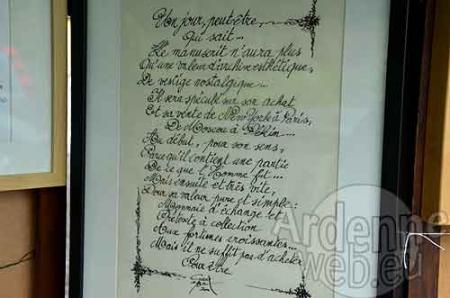 Un jour, peut-être,
Qui sait...
Le manuscrit n'aura plus
Qu'une valeur d'archive esthétique,
De vestige nostalgique...
Il sera spéculé sur son achat
Et sa vente de New York à Paris,
De Moscou à Pékin...
Au début, pour son sens,
Parce qu'il contient une partie
De ce que l'Homme fut...
Mais ensuite et très vite,
Pour sa valeur pure et simple:
Monnaie d'échange et
Prétexte à collection
Aux fortunes croissantes...
Mais il ne suffit pas d'acheter
Pour être
Ardenne
web.eu